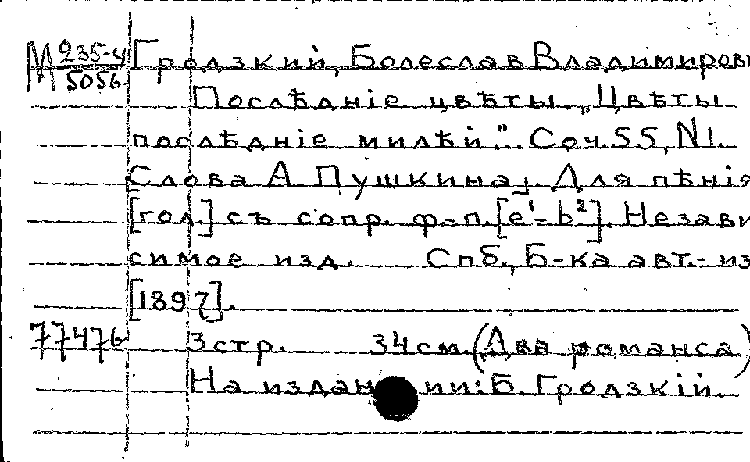 М 235-4/5056 Гродзкий, Болеслав Владимирови
Последнiе цвѣты „Цвѣты
послѣднiе милѣй". Соч. 55, N1.
Слова А. Пушкина. Для пѣнiя
[гол.] съ сопр. ф-п. [e¹-b²]. Незави
симое изд. Спб., Б-ка авт.-из
[1897].
77476 3 стр. 34 см. (Два романса)
На издании: Б. Гродзкiй.